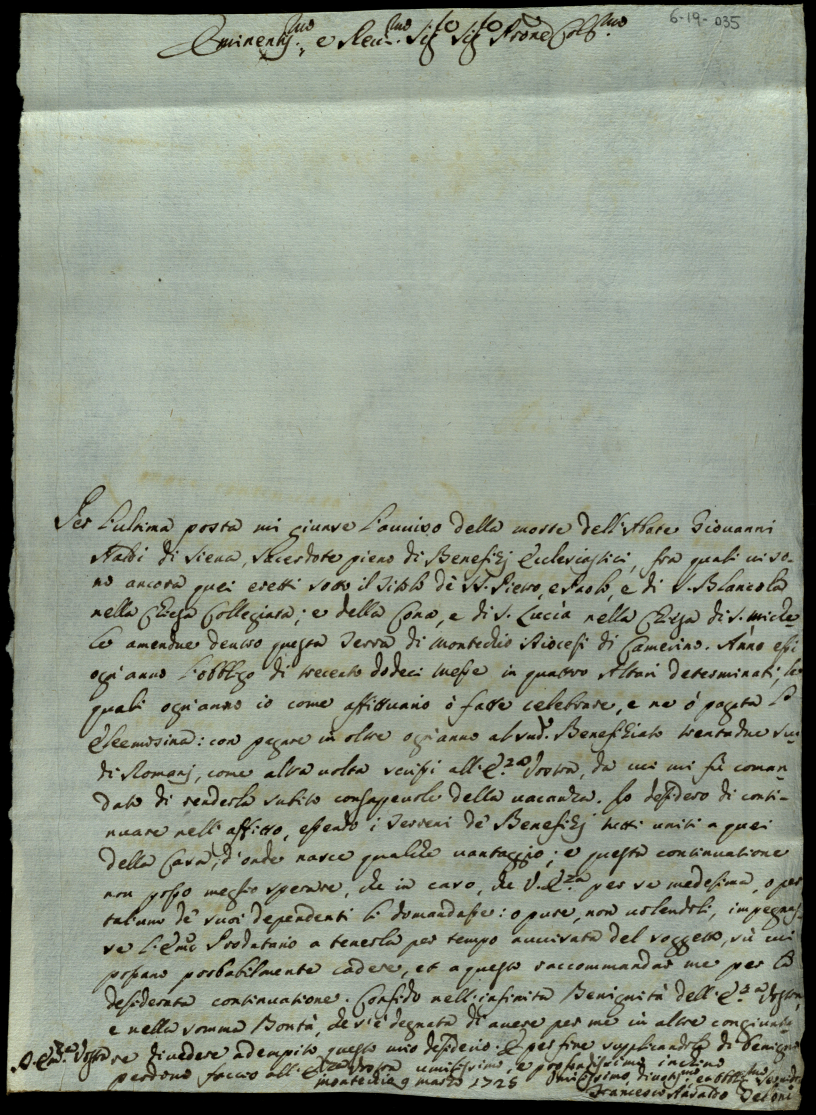 6-19-035
Eminentiss.mo e Rev.mo Sig.re Sig.re Prõne Col.mo
Per l'ultima posta mi giunse l'auuiso della morte dell'Abate Giovanni
Naldi di Siena, Sacerdote pieno di Benefizj Ecclesiastici, fra quali ui so-
no ancora quei eretti sotto il titolo de SS. Pietro, e Paolo, e di S. Blancola
nella Chiesa Collegiata; e della Conc., e di S. Lucia nella Chiesa di S. Miche
le amendue dentro questa Terra di Montechio Diocesi di Camerino. Anno essi
ogn'anno l'obbligo di trecento dodeci Messe in quattro Altari determinati, le
quali ogn'anno io come affittuario ò fatte celebrare, e ne ò pagata la
Elemosina: con pagare in oltre ogn'anno al sud.o Benefiziato trentadue scu-
di Romanj, come altra uolta scrissi all'E.za Vostra, da cui mi fù coman-
dato di renderla subito consapeuole della uacanza. Io desidero di conti-
nuare nell'affitto, essendo i Terreni de Benefizj tutti uniti a quei
della Casa, d'onde nasce qualche uantaggio; e questa continuatione
non posso meglio sperare, che in caso, che V.E.za per se medesima, o per
taluno de suoi dependenti li domandasse: o pure, non uolendoli, impegnas-
se l'Em.o Prodatario a tenerla per tempo auuisata del soggetto, sù cui
possano probabilmente cadere, et a questo raccommandar me per la
desiderata continuatione. Confido nell'infinita Benignità dell'E.za Vostra,
e nella somma Bontà, che s'è degnata di auere per me in altre congiuntu-
re di uedere adempito questo mio desiderio. E per fine supplicandola di benigno
perdono faccio all'E.za Vostra umilissimo, e profondissimo inchino
D. Em.za Vostra
Montechio 9 marzo 1725
umilissimo, diuotiss.mo, et obblig.mo Seruidore
Francesco Maualdo Deconi